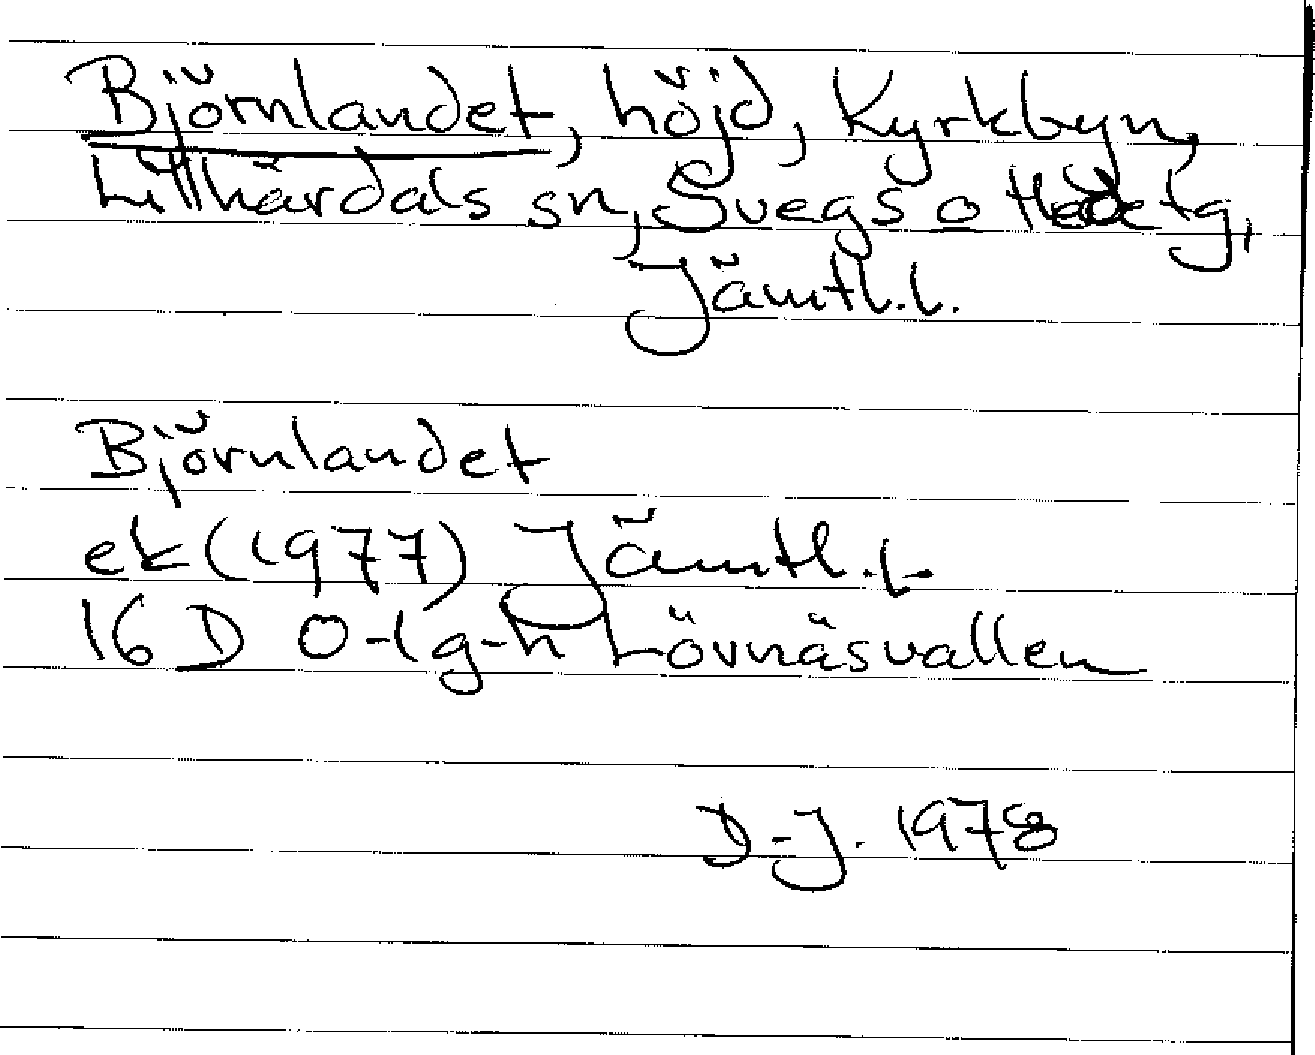 Björnlandet, höjd, Kyrkbyn,
Lillhärdals sn, Svegs o Hede tg,
Jämtl. l.
Björnlandet
ek (1977) Jämtl. l.
16 D 0-1 g-h Lövnäsvallen
D-J. 1978